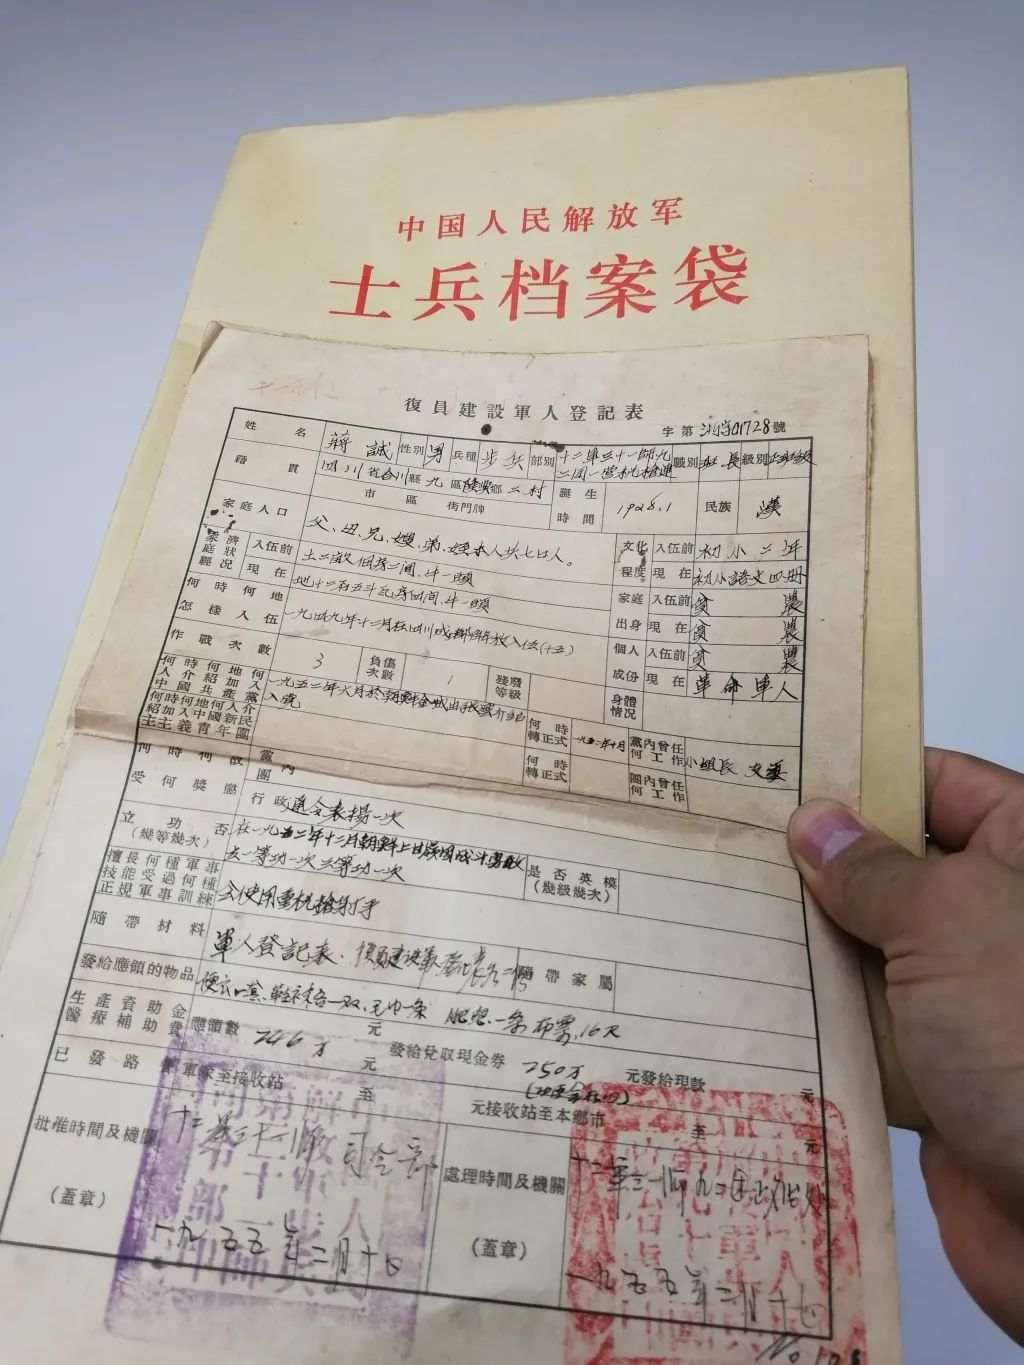 中国人民解放军
士兵档案袋
復員建設軍人登記表
字第 01728 號
姓名 蔣誠 性別 男 兵種 步兵 部別 十二軍三十一師九二團一營机槍連 職別 班長 級別
籍貫 四川省合川縣九區隆興鄉二村
市區街門牌
誕生時間 1928.1 民族 漢
家庭人口 父、母、兄、嫂、弟、本人共七口人。
文化程度 入伍前 初小二年
現在 初小語文四册
家庭經濟狀況 入伍前 土二畝 二間、牛一頭
現在 地十二石五斗 瓦房四間、牛一頭
家庭出身 入伍前 貧農
現在 貧農
何時何地怎樣入伍 一九四九年十二月在四川成都解放入伍
個人成份 入伍前 貧農
現在 革命軍人
作戰次數 3 負傷次數 1 殘廢等級
身體情况
何時何地何人介紹加入中國共產黨 一九五二年六月於朝鮮金城由 介紹入黨
何時轉正式 一九五二年十月 黨內曾任何工作 小組長 支委
何時何地何人介紹加入中國新民主主義青年團
何時轉正式 團內曾任何工作
何時何故受何獎懲 黨內
團
行政 通令表揚一次
立功否(幾等幾次) 在一九五二年十二月朝鮮上甘嶺 戰斗勇敢
立一等功一次三等功一次
是否英模(幾級幾次)
擅長何種軍事技能受過何種正規軍事訓練 会使用重机槍射手
隨帶材料 軍人登記表、復員建設軍人登記表各一份
隨帶家屬
發給應領的物品 便衣一套、鞋袜各一双、毛巾一条 肥皂一条 布票16尺
生產資助金醫療補助費 應領數 246万 元 發給兌取現金券 250万 元發給現款 元
已發路費 軍家至接收站 至 元接收站至本鄉市 至 元
批准時間及機關 十二軍三十一師司令部
(蓋章)
一九五五年二月十七
處理時間及機關 十二軍三一師九二团政治处
(蓋章)
一九五五年二月十七